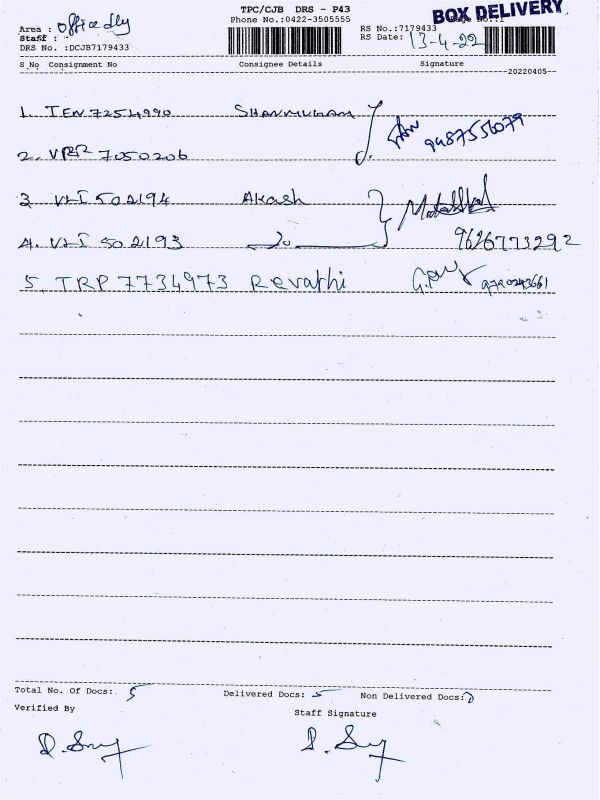 TPC/CJB DRS - P43
BOX DELIVERY
Area : Office dly
Phone No.:0422-3505555
RS No.:7179433
Staff :
RS Date: 13-4-22
DRS No. :DCJB7179433
S No Consignment No Consignee Details Signature
20220405
1. TEN 7254990 SHANMUGAM 9487556079
2. VPR 7050206
3 VLI 502194 Akash
4. VLI 502193 9626773292
5. TRP 7734973 Revathi
Total No. Of Docs: 5 Delivered Docs: 5 Non Delivered Docs:0
Verified By Staff Signature